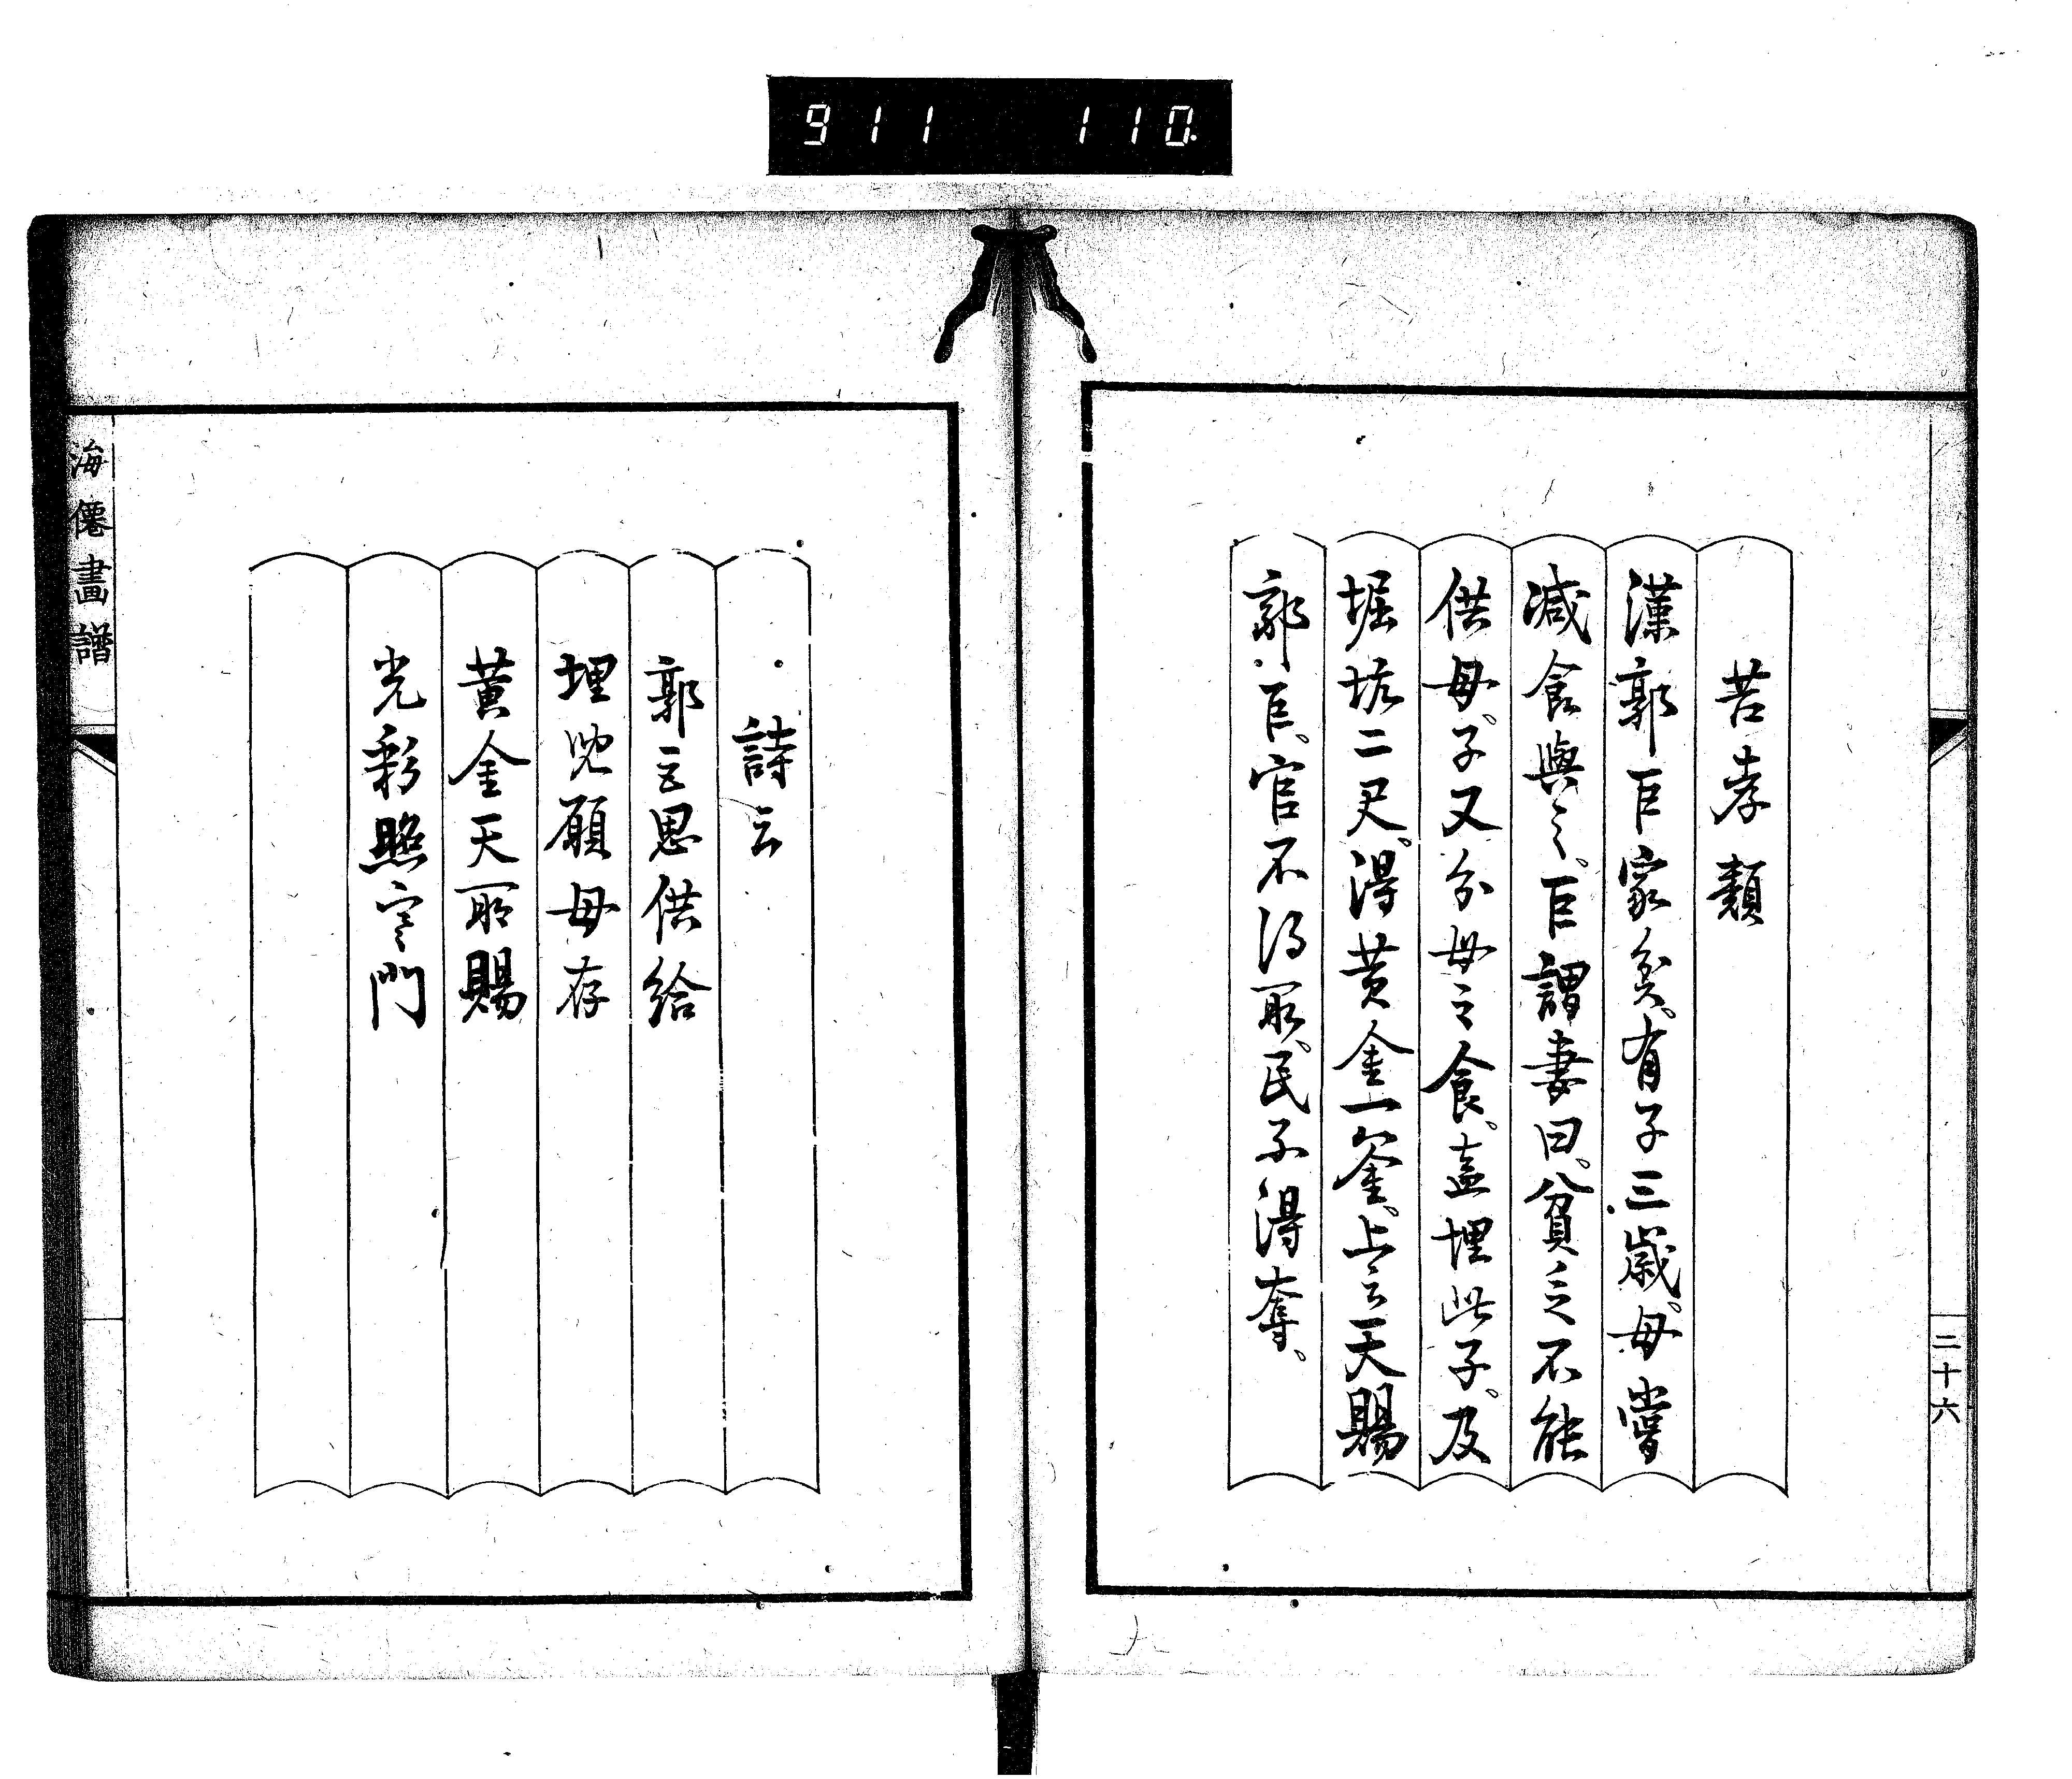 911 110
二十六
苦孝類
漢郭巨家貧。有子三歲。母嘗
減食與之。巨謂妻曰。貧乏不能
供母。子又分母之食。盍埋此子。及
堀坑二尺。得黄金一釜。上云天賜
郭巨。官不得取。民不得奪。
詩云
郭巨思供給
埋児願母存
黄金天所賜
光彩照寒門
海僊畫譜